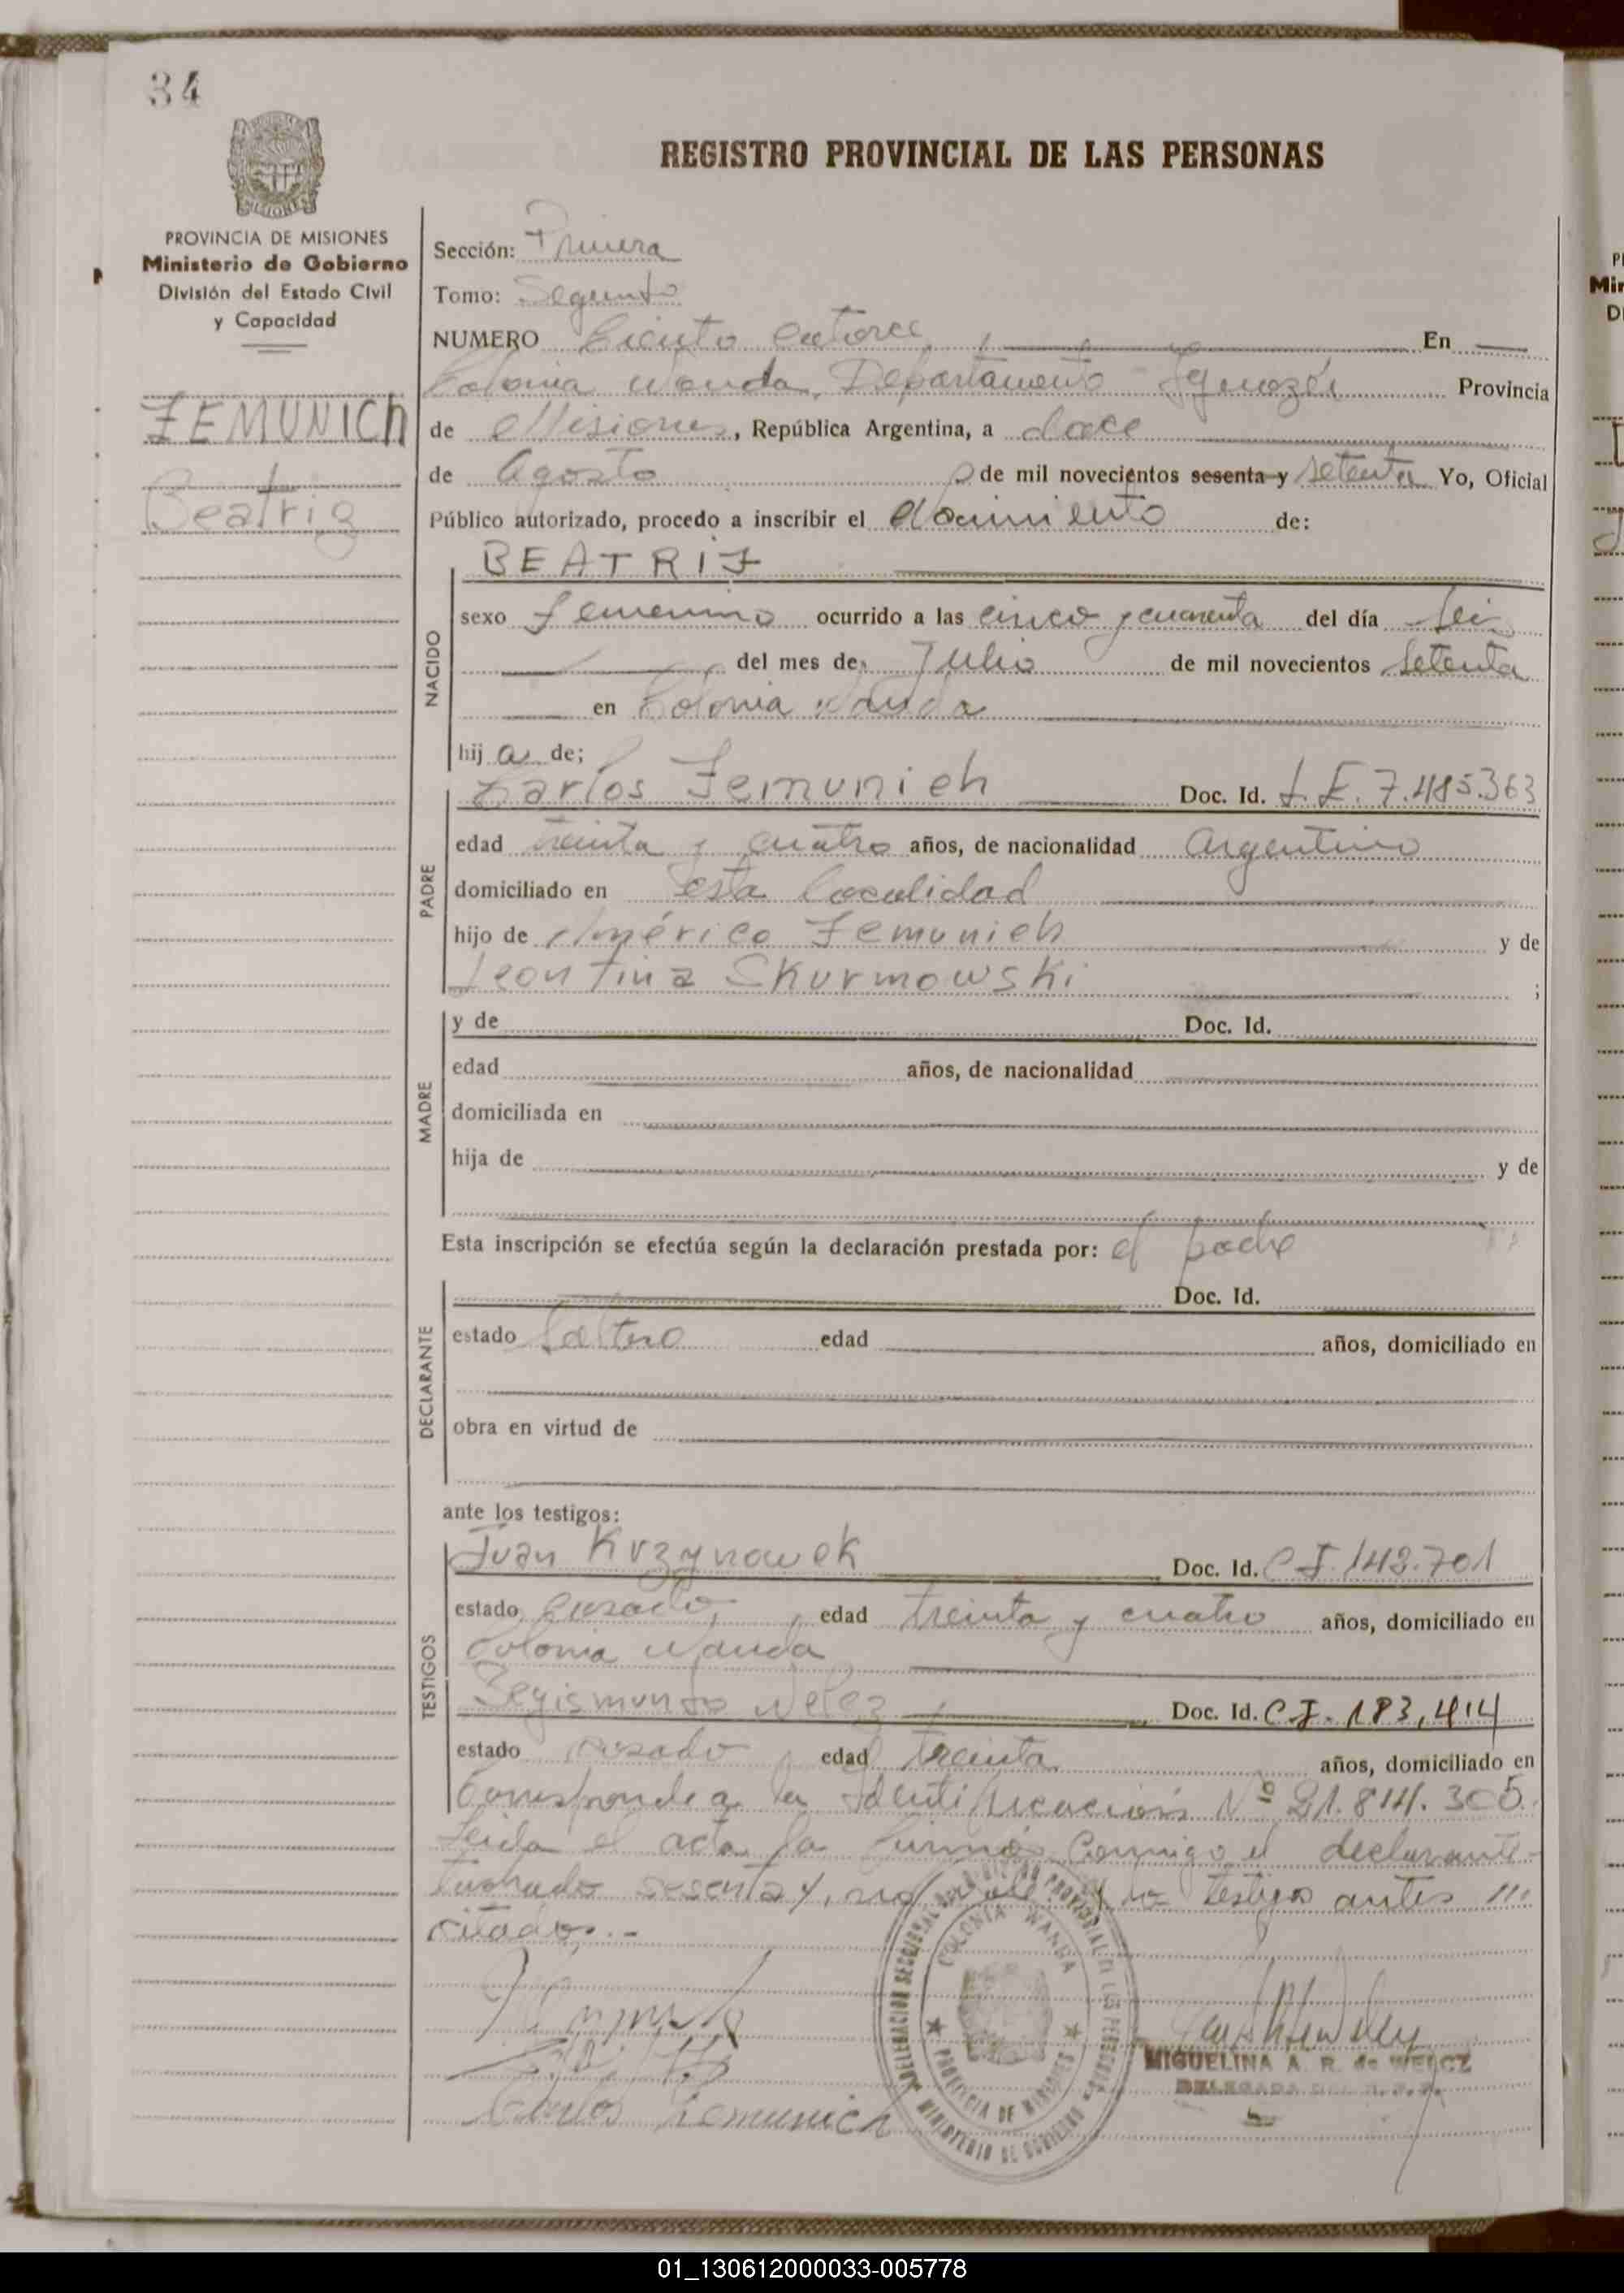 34
REGISTRO PROVINCIAL DE LAS PERSONAS
PROVINCIA DE MISIONES
Ministerio de Gobierno
División del Estado Civil
y Capacidad
ZEMUNICH
Beatriz
Sección: Primera
Tomo: Segundo
NUMERO Ciento Catorce En
Colonia Wanda, Departamento Iguazú Provincia
de Misiones, República Argentina, a doce
de Agosto de mil novecientos sesenta y setenta Yo, Oficial
Público autorizado, procedo a inscribir el Nacimiento de:
NACIDO
BEATRIZ
sexo femenino ocurrido a las cinco y cuarenta del día Seis
del mes de Julio de mil novecientos Setenta
en Colonia Wanda
hij a de;
PADRE
Carlos Zemunich Doc. Id. L.E. 7.485.363
edad treinta y cuatro años, de nacionalidad Argentino
domiciliado en esta localidad
hijo de Américo Zemunich y de
Leontina Skurmowski ;
MADRE
y de Doc. Id.
edad años, de nacionalidad
domiciliada en
hija de y de
Esta inscripción se efectúa según la declaración prestada por: el padre
DECLARANTE
Doc. Id.
estado Soltero edad años, domiciliado en
obra en virtud de
ante los testigos:
TESTIGOS
Juan Krzynowek Doc. Id. C.I. 143.701
estado Casado, edad treinta y cuatro años, domiciliado en
Colonia Wanda
Segismundo Welcz Doc. Id. C.I. 183,414
estado casado edad treinta años, domiciliado en
Corresponde a la Identificación Nº 21.814.305.
Leida el acta la firmó conmigo el declarante
testado sesenta y, no vale y los testigos antes
citados.-
COLONIA WANDA
PROVINCIA DE MISIONES
MINISTERIO DE GOBIERNO
MIGUELINA A. R. de WELCZ
DELEGADA DEL R.P.P.
Carlos Zemunich
01_130612000033-005778